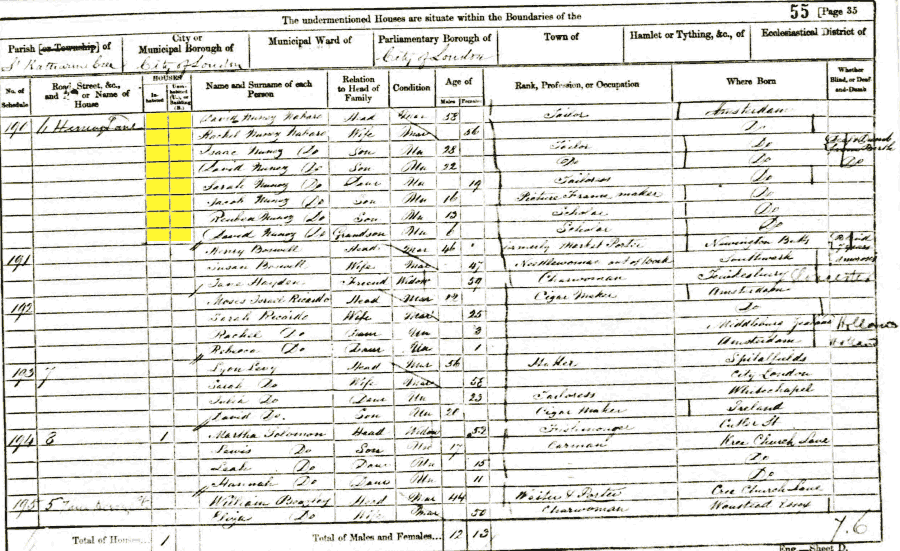 The undermentioned Houses are situate within the Boundaries of the
55 [Page 35
Parish [or Township] of
St Katharine Cree
City or Municipal Borough of
City of London
Municipal Ward of
Parliamentary Borough of
City of London
Town of
Hamlet or Tything, &c., of
Ecclesiastical District of
No. of Schedule
Road, Street, &c., and No. or Name of House
HOUSES
In-habited
Unin-habited (U.), or Building (B.)
Name and Surname of each Person
Relation to Head of Family
Condition
Age of
Males Females
Rank, Profession, or Occupation
Where Born
Whether Blind, or Deaf-and-Dumb
David Nunoz Nabaro Head Mar 58 Tailor Amsterdam
Rachel Nunoz Nabaro Wife Mar 56 Do
Isaac Nunoz Do Son Un 28 Tailor Do
David Nunoz Do Son Un 22 Do Do Do
Sarah Nunoz Do Daur Un 19 Tailoress Do
Jacob Nunoz Do Son Un 16 Picture Frame maker Do
Reuben Nunoz Do Son Un 13 Scholar Do
David Nunoz Do Grandson Un 6 Scholar Do
191 Henry Boswell Head Mar 46 Formerly Market Porter Newington Butts
Susan Boswell Wife Mar 47 Needlewoman out of Work Southwark
Jane Hayden Friend Widow 59 Charwoman
192 Moses Israel Ricardo Head Mar Cigar Maker Amsterdam
Sarah Ricardo Wife Mar 25 Do
Rachel Do Daur Un 3 Holland
Rebecca Do Daur Un 1 Amsterdam Holland
193 7 Lyon Levy Head Mar 56 Spitalfields
Sarah Do Wife Mar 58 City London
Julia Do Daur Un 23 Tailoress Whitechapel
David Do Son Un 20 Cigar Maker Ireland
194 8 1 Martha Solomon Head Widow 52 Fishmonger Cutler St
Lewis Do Son Un 17 Carman Cree Church Lane
Leah Do Daur Un 15 Do
Hannah Do Daur Un 11 Do
195 5 William Head Mar 44 Waiter & Porter Cree Church Lane
Eliza Do Wife Mar 50 Charwoman Wanstead Essex
Total of Houses... 1
Total of Males and Females... 12 13
7.6
Eng.—Sheet D.